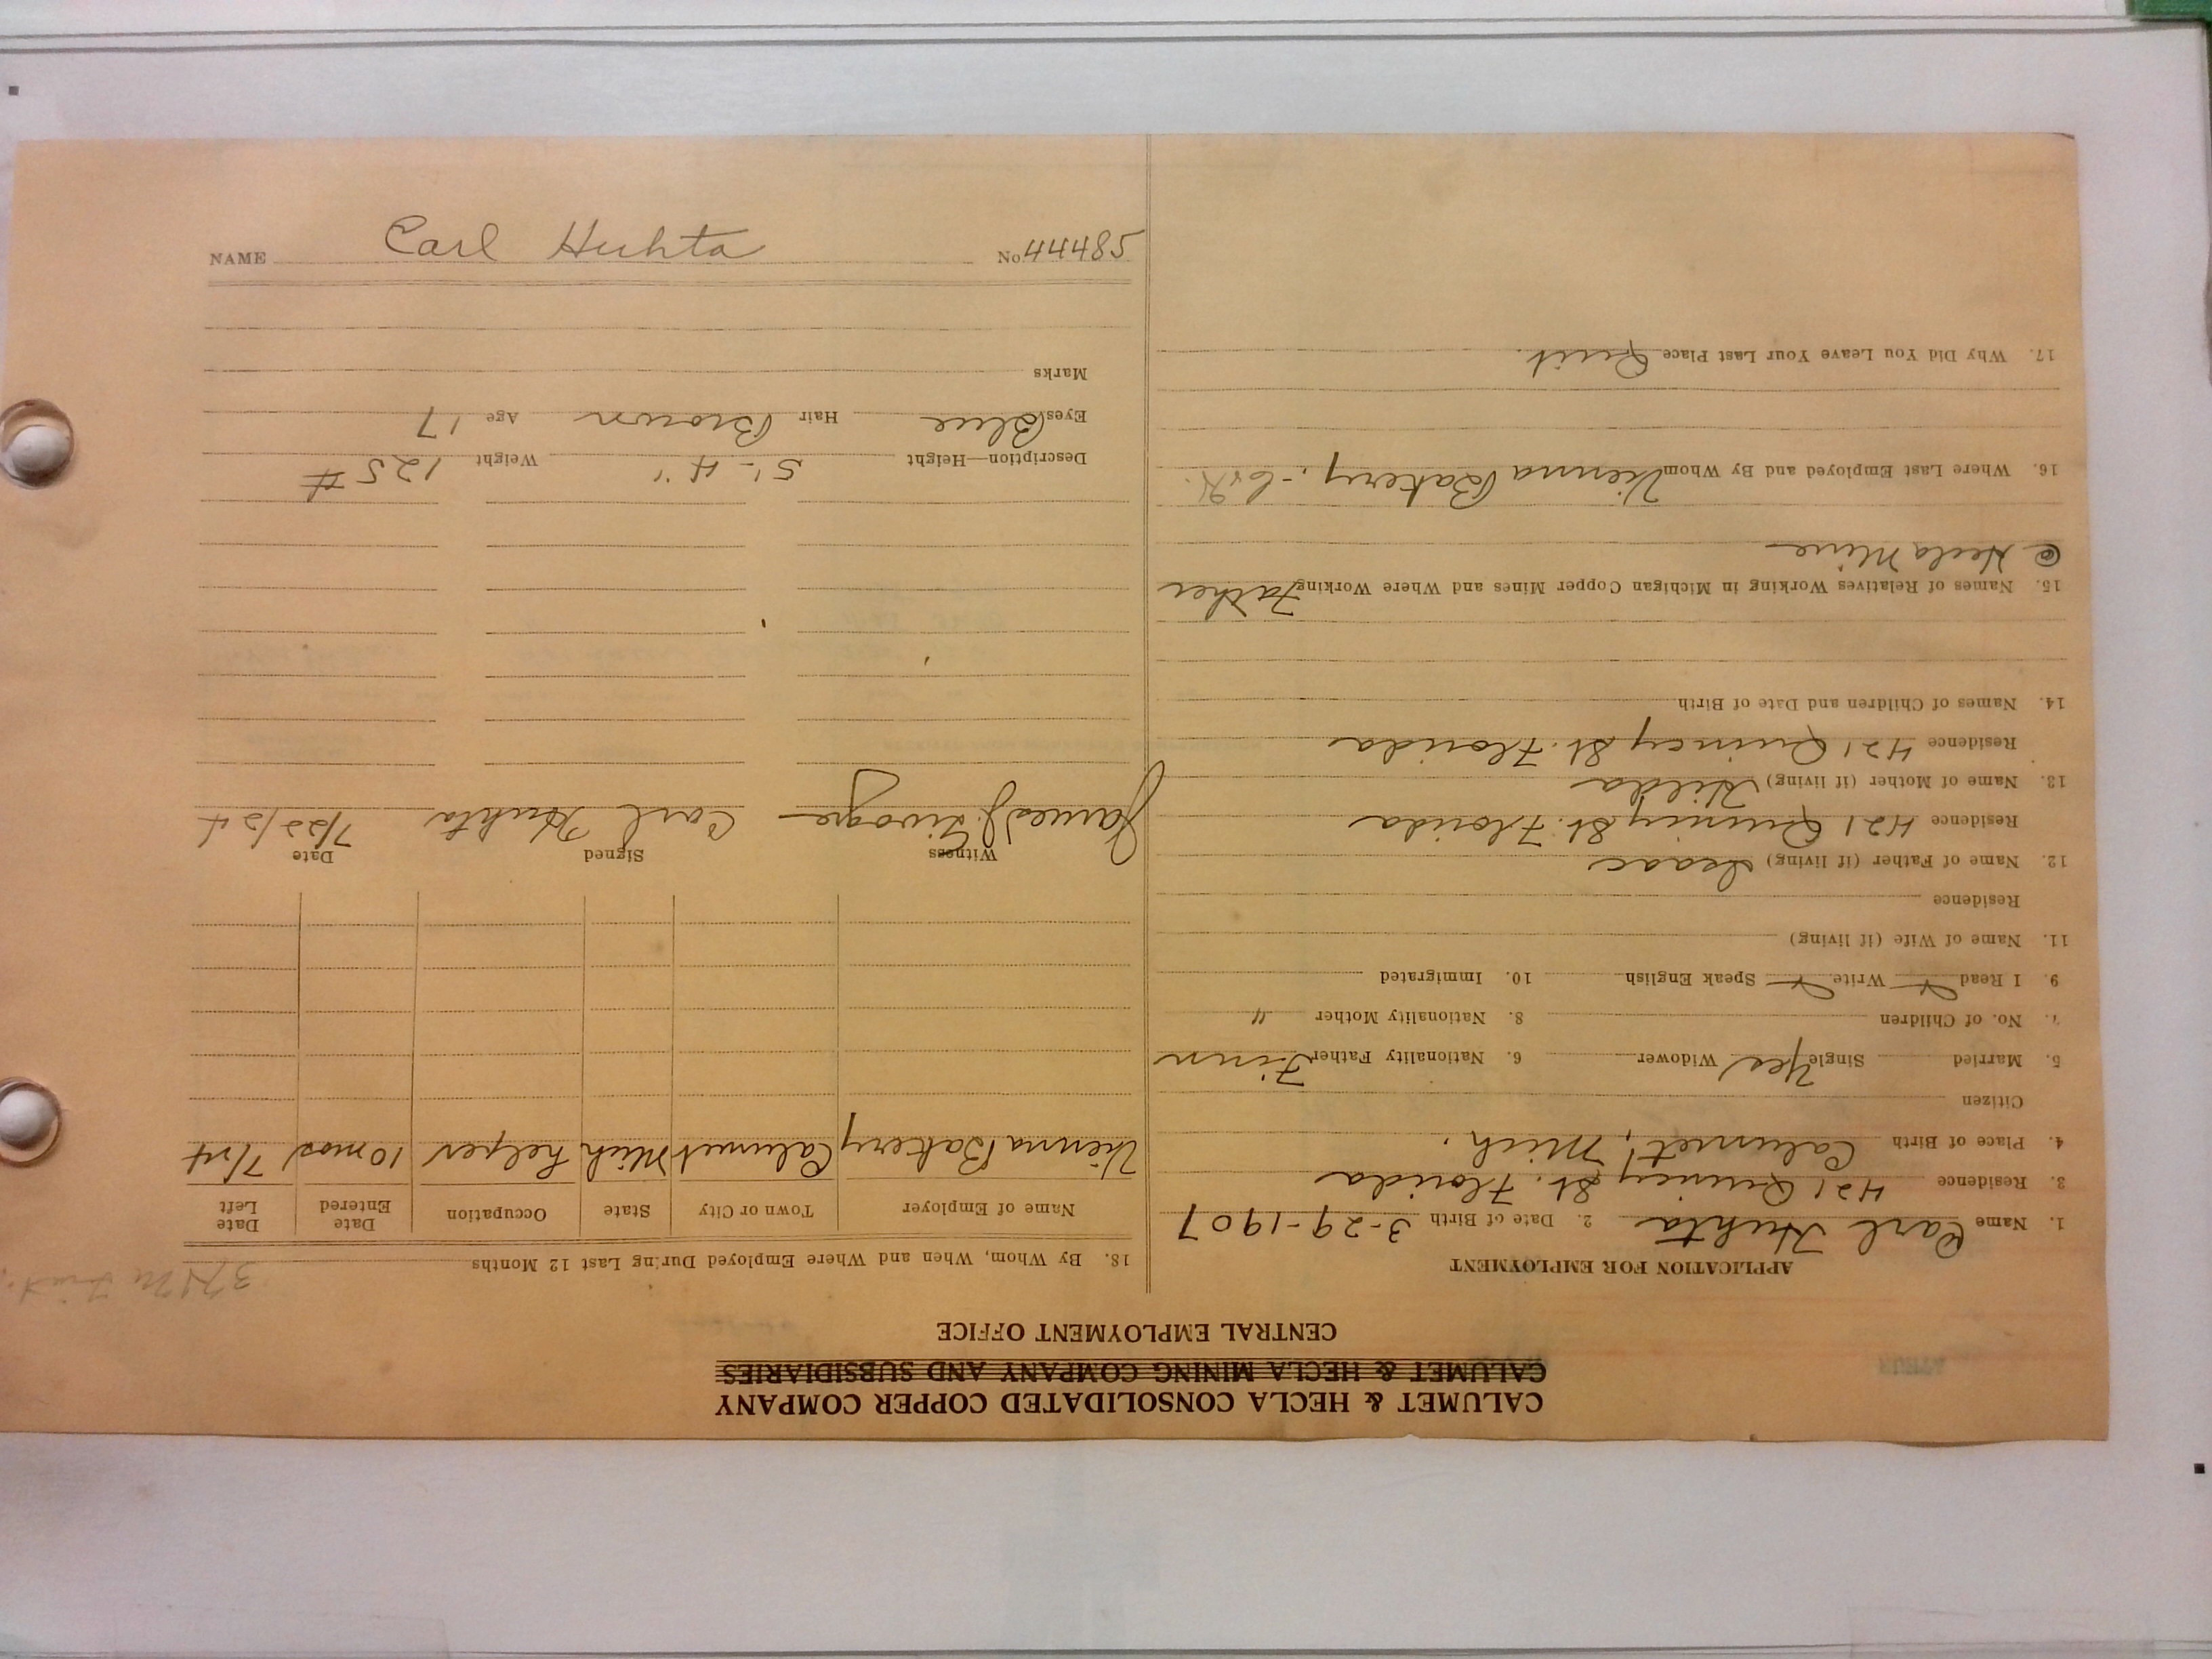 CALUMET & HECLA CONSOLIDATED COPPER COMPANY
CALUMET & HECLA MINING COMPANY AND SUBSIDIARIES
CENTRAL EMPLOYMENT OFFICE
APPLICATION FOR EMPLOYMENT
1. Name Carl Huhta 2. Date of Birth 3-29-1907
3. Residence 421 Quincy St. Florida
4. Place of Birth Calumet, Mich.
Citizen
5. Married Single Yes Widower 6. Nationality Father Finn
7. No. of Children 8. Nationality Mother "
9. I Read Write Speak English 10. Immigrated
11. Name of Wife (if living)
Residence
12. Name of Father (if living) Isaac
Residence 421 Quincy St. Florida
13. Name of Mother (if living) Hilda
Residence 421 Quincy St. Florida
14. Names of Children and Date of Birth
15. Names of Relatives Working in Michigan Copper Mines and Where Working Father
@ Hecla Mine
16. Where Last Employed and By Whom Vienna Bakery,-
17. Why Did You Leave Your Last Place Quit.
18. By Whom, When and Where Employed During Last 12 Months
Name of Employer Town or City State Occupation Date Entered Date Left
Vienna Bakery Calumet Mich helper 10 mos 7/24
Witness Signed Date
James J. Carl Huhta 7/22/24
Description—Height 5'-4" Weight 125 #
Eyes Blue Hair Brown Age 17
Marks
NAME Carl Huhta No. 44485